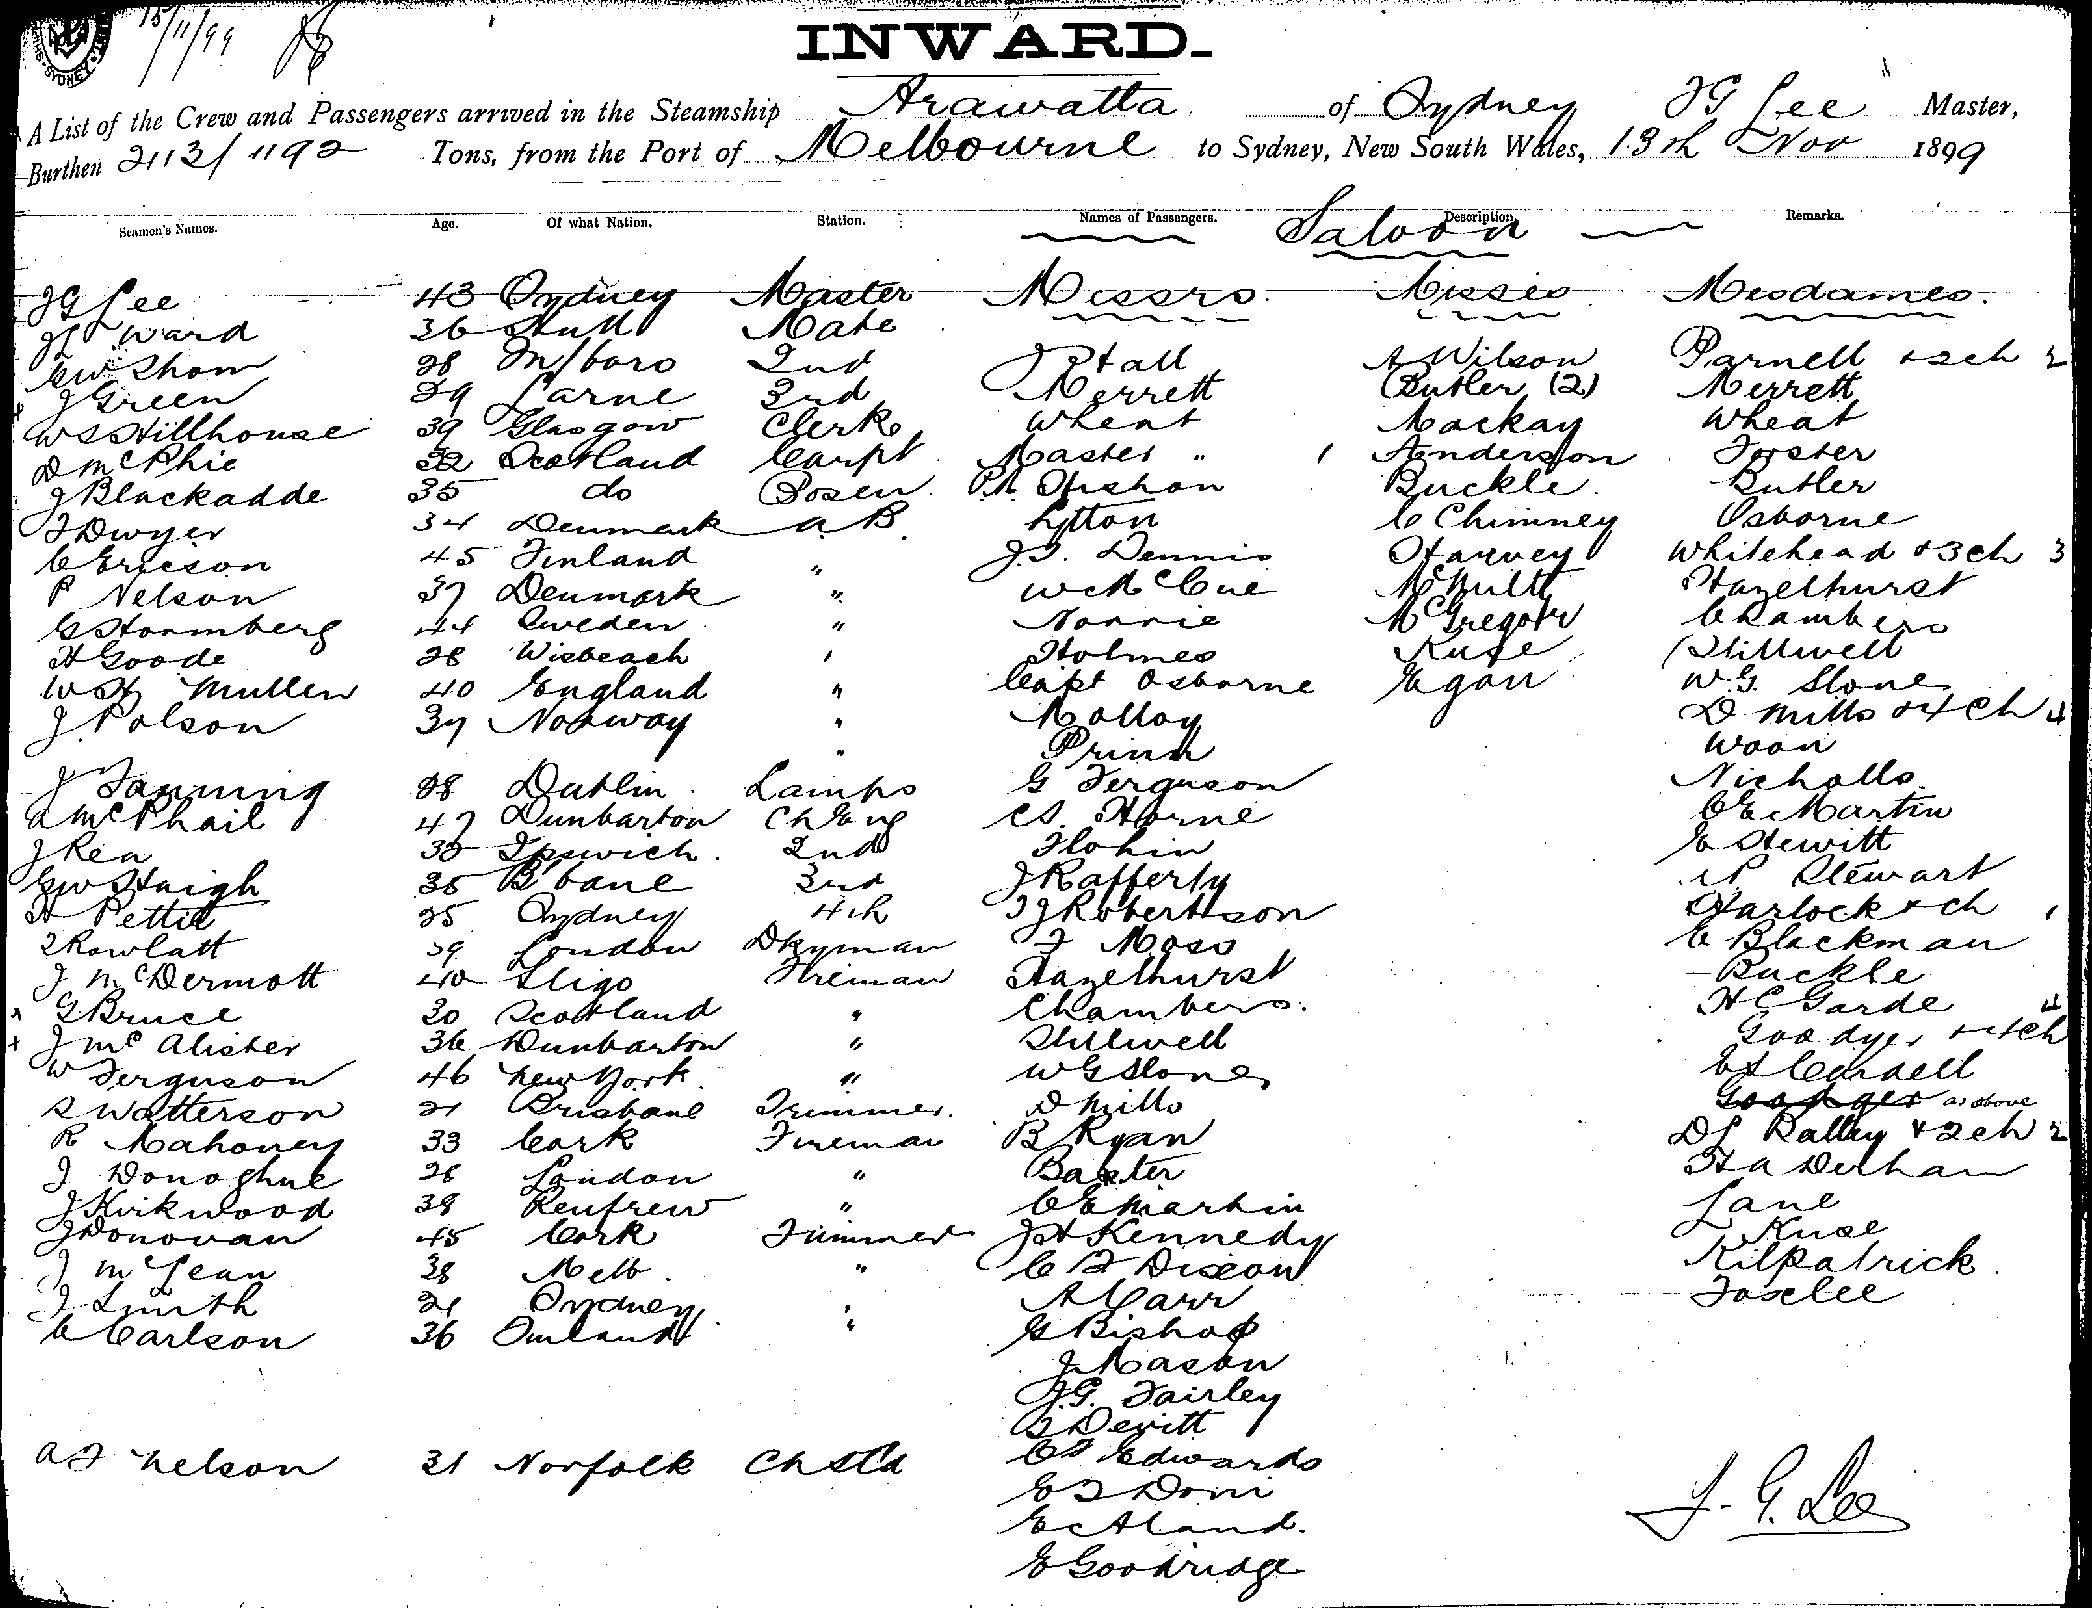 15/11/99
SYDNEY
INWARD.
A List of the Crew and Passengers arrived in the Steamship Arawatta of Sydney J G Lee Master,
Burthen 2113/1192 Tons, from the Port of Melbourne to Sydney, New South Wales, 13th Nov 1899
Seamen's Names. Age. Of what Nation. Station. Names of Passengers. Description. Remarks.
Saloon
J G Lee 43 Sydney Master Messrs. Misses Mesdames.
Ward 36 Hull Mate
G W Thom 28 M/boro 2nd J Hall A Wilson Parnell & 2 ch 2
J Green 29 Larne 3rd Merrett Butler (2) Merrett
W S Hillhouse 39 Glasgow Clerk Wheat Mackay Wheat
D McPhie 32 Scotland Carpt Master " 1 Anderson Forster
J Blackadde 35 do Bosen Buckle Butler
J Dwyer 34 Denmark A.B. Lytton C Chimney Osborne
C Ericson 45 Finland " J.T. Dennis Harvey Whitehead & 3 ch 3
P Nelson 37 Denmark " W McCue McNulty Hazelhurst
G Stormberg 44 Sweden " Norrie McGregor Chambers
H Goode 28 Wisbeach " Holmes Kuse Stillwell
W H Mullen 40 England " Capt Osborne Egan W.G. Stone
J. Polson 37 Norway " Molloy D Mills & 4 ch 4
" Prinn Woon
J Fanning 28 Dublin Lamps G Ferguson Nicholls
A McPhail 47 Dunbarton Ch Eng C S. Horne C E Martin
J Rea 35 Ipswich 2nd Flohin E Hewitt
G W Haigh 35 B'bane 3rd J Rafferty Stewart
H Pettit 25 Sydney 4th T J Robertson Harlock & ch 1
Rowlatt 39 London Dkyman F Moss C Blackman
J McDermott 40 Sligo Fireman Hazelhurst Buckle
G Bruce 30 Scotland " Chambers. H C Garde 4
J McAlister 36 Dunbarton " Stillwell Goodyer & 4 ch
W Ferguson 46 New York " W G Stone Cordell
S Watterson 21 Brisbane Trimmer D Mills as above
R Mahoney 33 Cork Fireman B Ryan D L Ralley & 2 ch 2
J Donoghue 28 London " Baxter H A Derham
J Kirkwood 38 Renfrew " C E Martin Lane
J Donovan 45 Cork Trimmer J H Kennedy Kuse
J McLean 38 Melb " C F Dixon Kilpatrick
J Smith 21 Sydney " A Carr Foxlee
C Carlson 36 Finland " G Bishop
J Mason
J.G. Fairley
Devitt
A J Nelson 31 Norfolk Ch Std Edwards
E Dorn
E C Aland.
E Goodridge
J. G. Lee